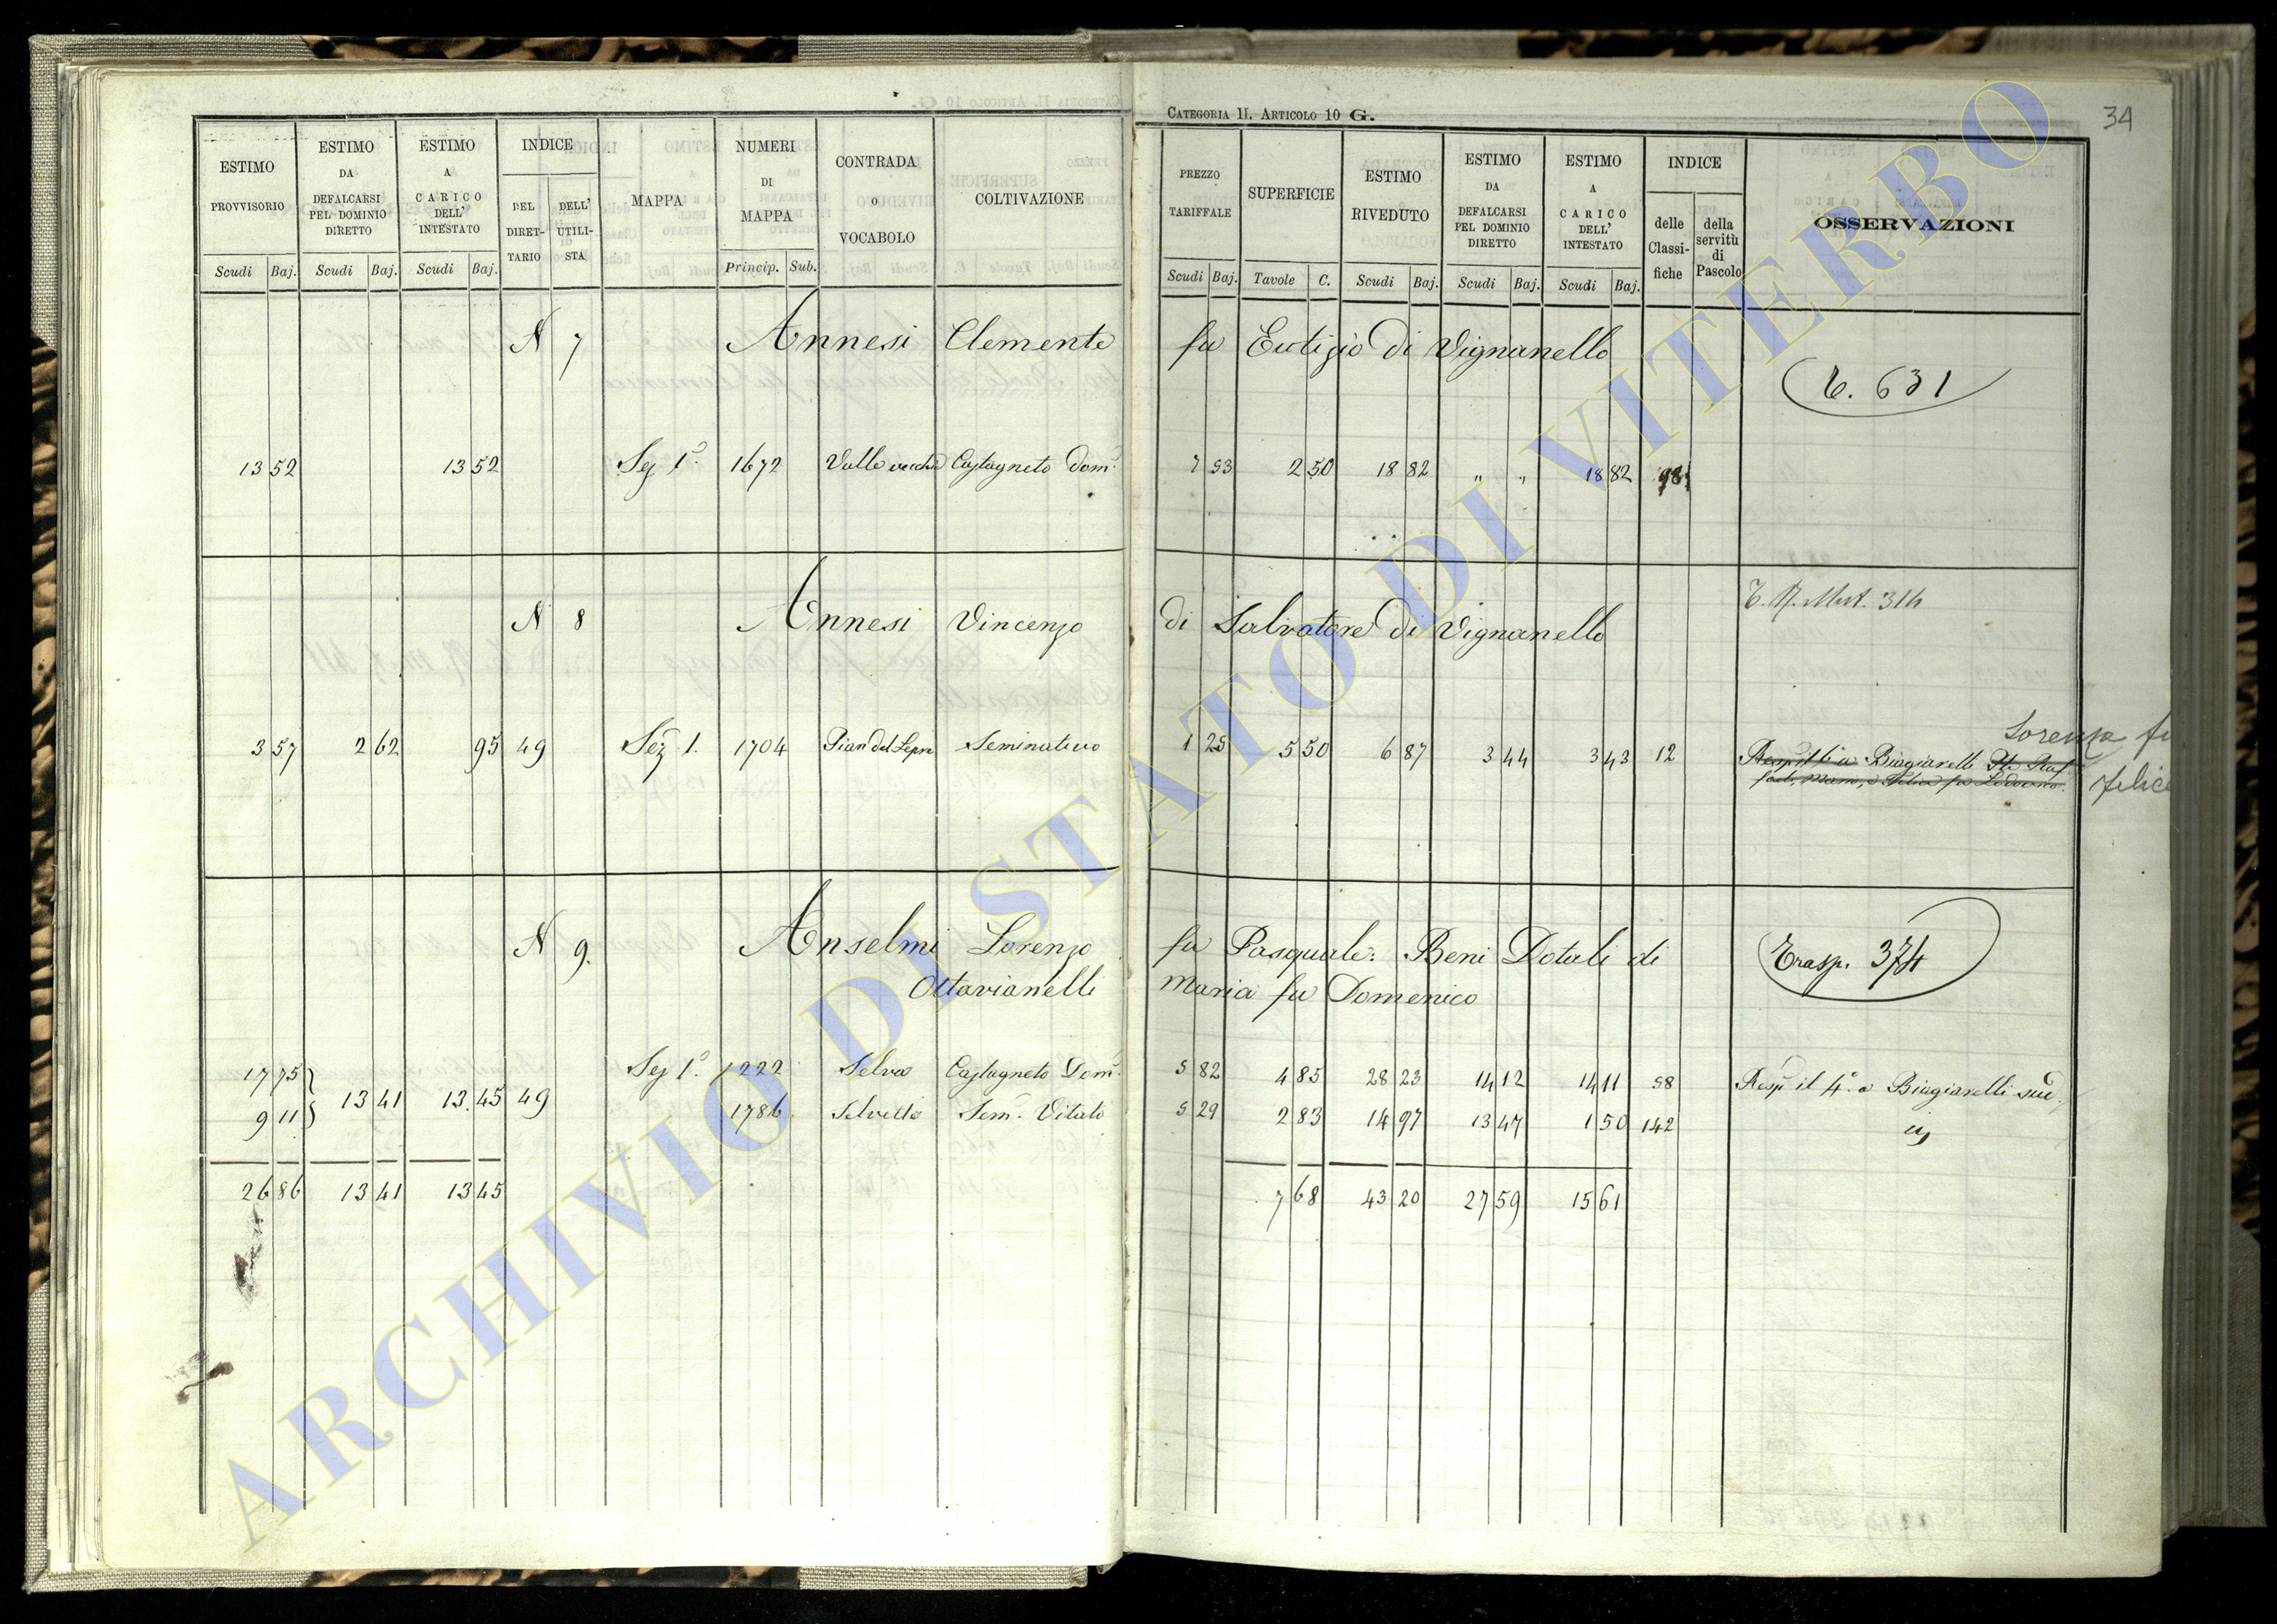 CATEGORIA II. ARTICOLO 10 G.
34
ESTIMO PROVVISORIO Scudi Baj.
ESTIMO DA DEFALCARSI PEL DOMINIO DIRETTO Scudi Baj.
ESTIMO A CARICO DELL' INTESTATO Scudi Baj.
INDICE DEL DIRET-TARIO DELL' UTILI-STA
MAPPA
NUMERI DI MAPPA Princip. Sub.
CONTRADA o VOCABOLO
COLTIVAZIONE
PREZZO TARIFFALE Scudi Baj.
SUPERFICIE Tavole C.
ESTIMO RIVEDUTO Scudi Baj.
ESTIMO DA DEFALCARSI PEL DOMINIO DIRETTO Scudi Baj.
ESTIMO A CARICO DELL' INTESTATO Scudi Baj.
INDICE delle Classi-fiche della servitù di Pascolo
OSSERVAZIONI
N 7 Annesi Clemente fu Eutizio di Vignanello
T. 631
13 52 13 52 Sez 1ª 1672 Valle vecchia Castagneto dom. 7 53 2 50 18 82 " " 18 82 98
T. N. Mut. 314
N 8 Annesi Vincenzo di Salvatore di Vignanello
Lorenza fu
3 57 2 62 95 49 Sez. 1. 1704 Pian del Lepre Seminativo 1 25 5 50 6 87 3 44 3 43 12 Biagiarelli
felice
N 9. Anselmi Lorenzo fu Pasquale: Beni Dotali di
Trasp. 374
Ottavianelli Maria fu Domenico
17 75 13 41 13 45 49 Sez 1ª 1222 Selva Castagneto Dom. 5 82 4 85 28 23 14 12 14 11 98 Resp. il 4º a Biagiarelli sud.
9 11 1786 Selvetta Sem. Vitato 5 29 2 83 14 97 13 47 1 50 142
26 86 13 41 13 45 7 68 43 20 27 59 15 61
ARCHIVIO DI STATO DI VITERBO